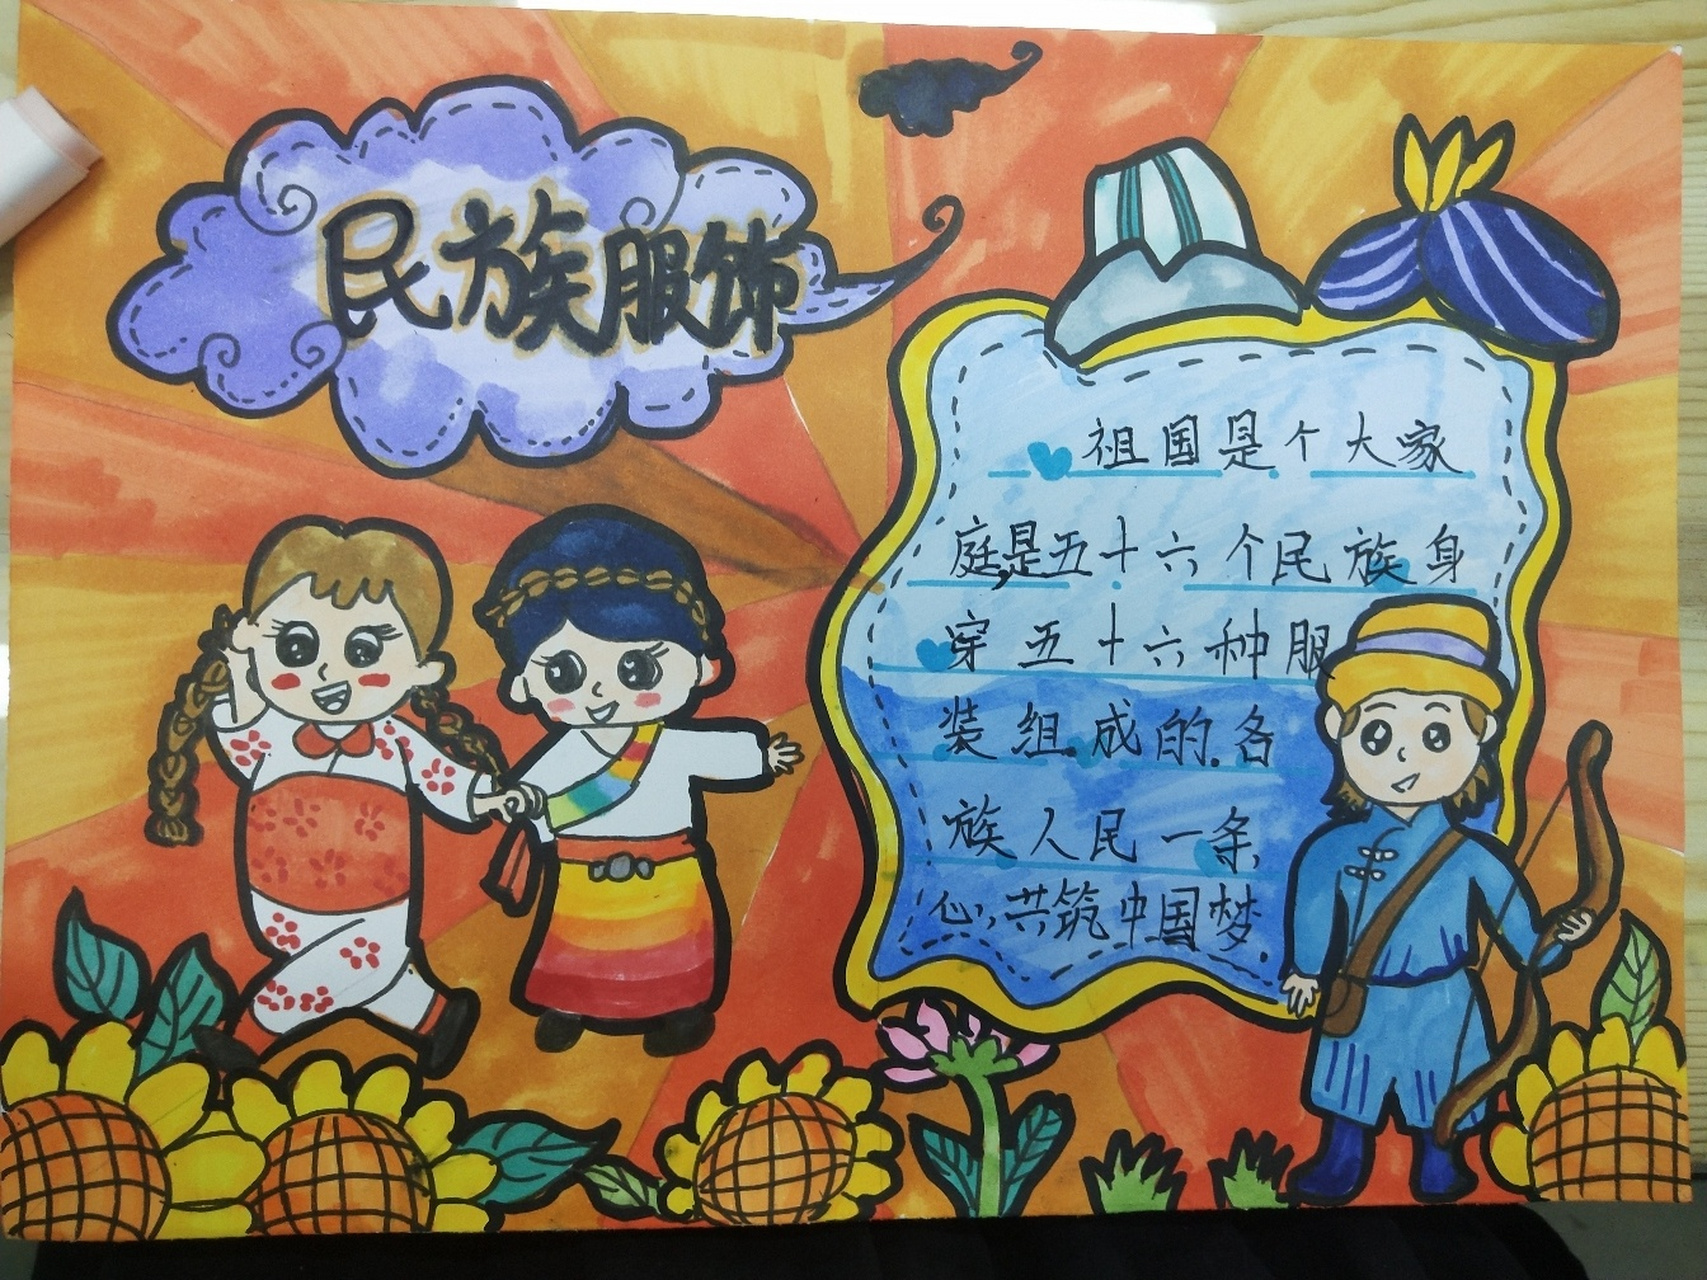 民族服饰
祖国是个大家
庭,是五十六个民族身
穿五十六种服
装组成的.各
族人民一条
心,共筑中国梦.